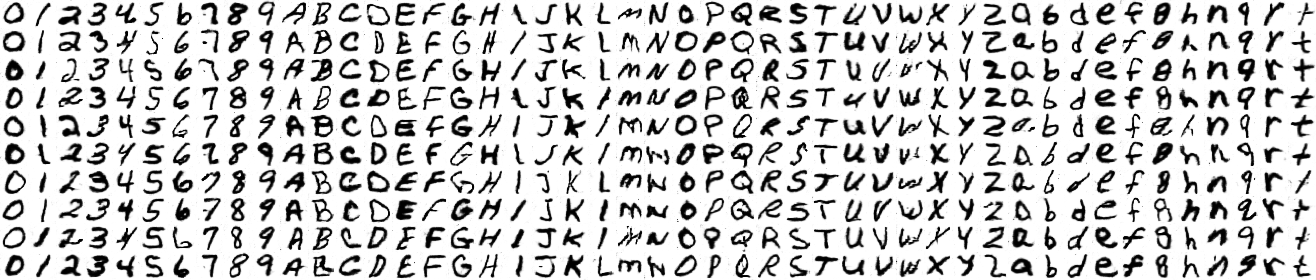 0 1 2 3 4 5 6 7 8 9 A B C D E F G H I J K L M N O P Q R S T U V W X Y Z a b d e f g h n q r t
0 1 2 3 4 5 6 7 8 9 A B C D E F G H I J K L M N O P Q R S T U V W X Y Z a b d e f g h n q r t
0 1 2 3 4 5 6 7 8 9 A B C D E F G H I J K L M N O P Q R S T U V W X Y Z a b d e f g h n q r t
0 1 2 3 4 5 6 7 8 9 A B C D E F G H I J K L M N O P Q R S T U V W X Y Z a b d e f g h n q r t
0 1 2 3 4 5 6 7 8 9 A B C D E F G H I J K l M N O P Q R S T U V W X Y Z a b d e f g h n q r t
0 1 2 3 4 5 6 7 8 9 A B C D E F G H I J K l M N O P Q R S T U V W X Y Z a b d e f g h n q r t
0 1 2 3 4 5 6 7 8 9 A B C D E F G H I J K L M N O P Q R S T U V W X Y Z a b d e f g h n q r t
0 1 2 3 4 5 6 7 8 9 A B C D E F G H I J K l M N O P Q R S T U V W X Y Z a b d e f g h n q r t
0 1 2 3 4 5 6 7 8 9 A B C D E F G H I J K l M N O P Q R S T U V W X Y Z a b d e f g h n q r t
0 1 2 3 4 5 6 7 8 9 A B C D E F G H I J K L M N O P Q R S T U V W X Y Z a b d e f g h n q r t